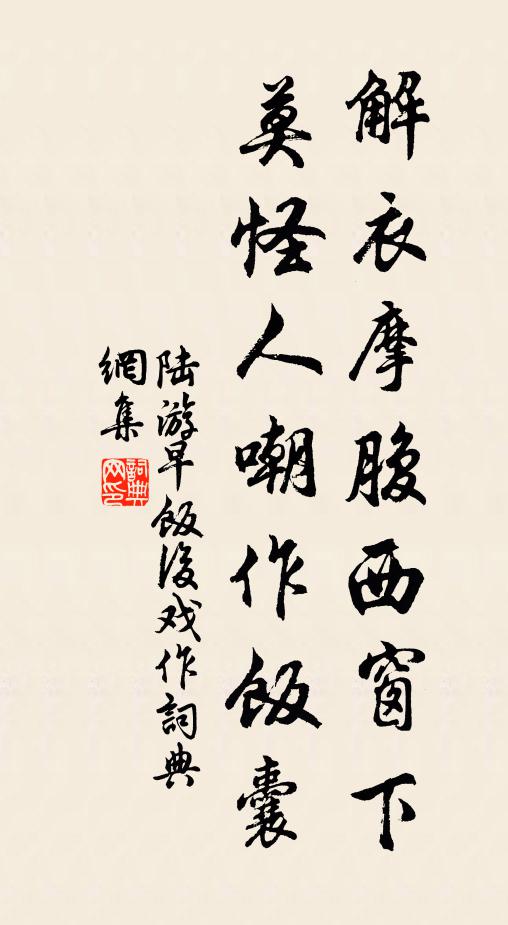 解衣摩腹西窗下
莫怪人嘲作飯囊
陆游早飯後戏作詞典
網集
詞典网印